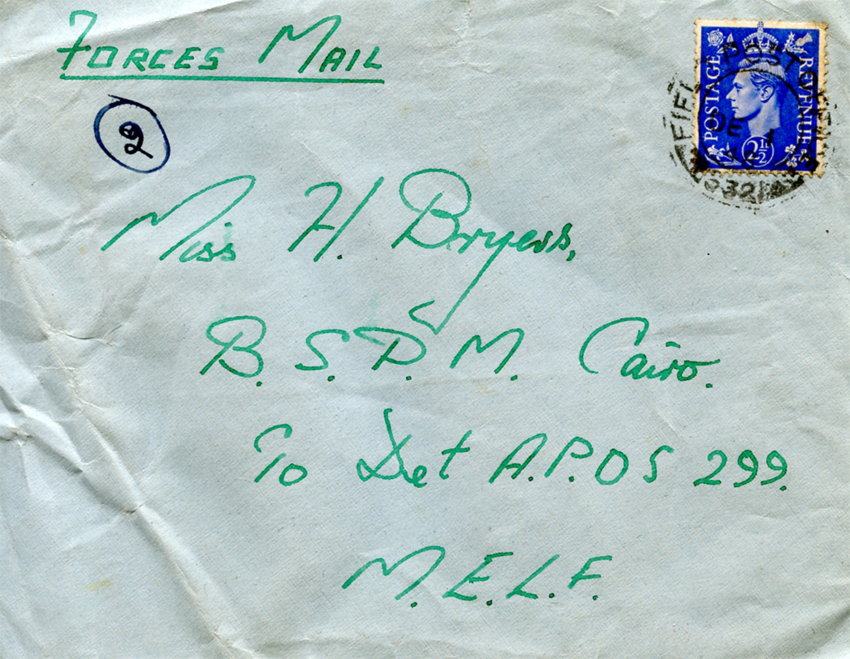 FORCES MAIL
2
POSTAGE REVENUE
2½
FIELD POST OFFICE
DE 1
932
Miss H. Bryers,
B. S. P. M. Cairo.
To Det A.P.O S 299.
M. E. L. F.